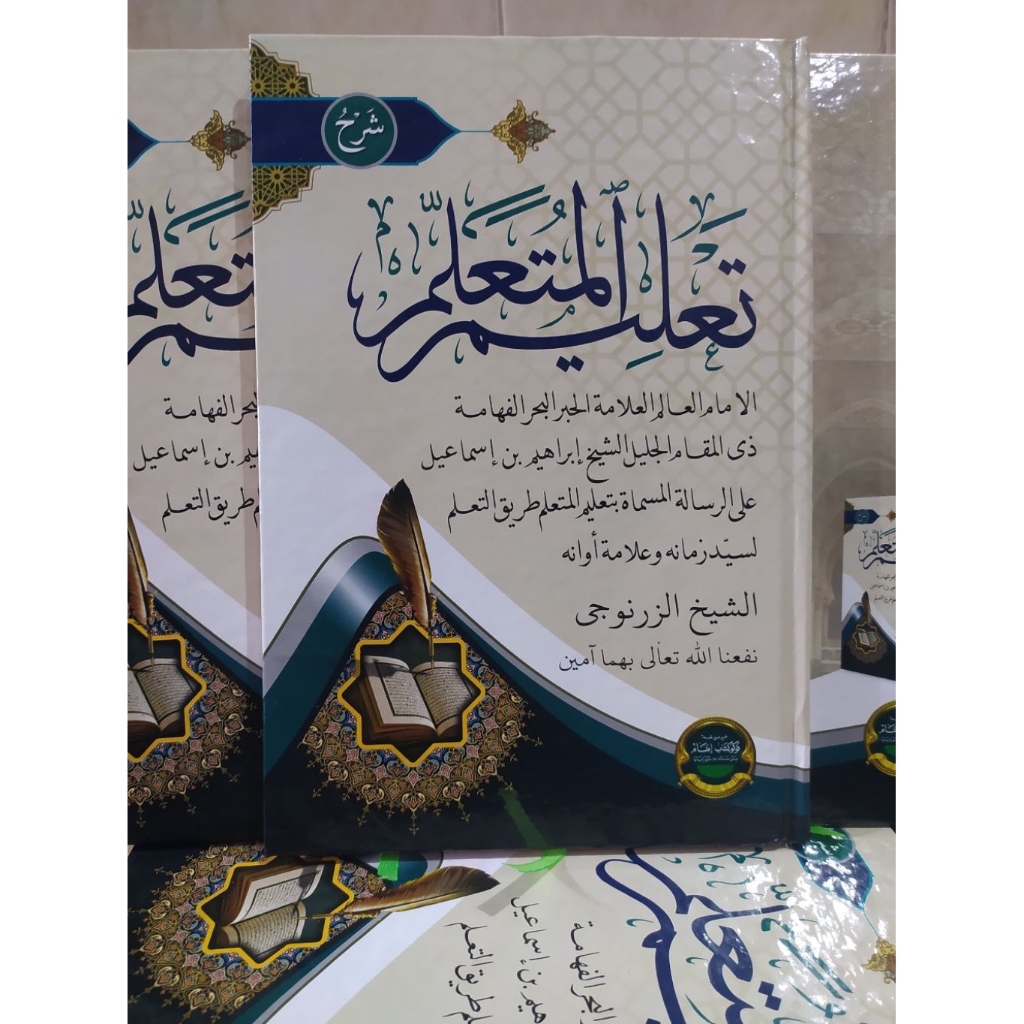 شَرْحُ
تعليم المتعلم
الامام العالم العلامة الحبر البحر الفهامة
ذى المقام الجليل الشيخ إبراهيم بن إسماعيل
على الرسالة المسماة بتعليم المتعلم طريق التعلم
لسيّد زمانه وعلامة أوانه
الشيخ الزرنوجى
نفعنا الله تعالى بهما آمين
بحر الفهامة
هيم بن إسماعيل
م طريق التعلم
البحر الفهامة
هيم بن إسماعيل
لم طريق التعلم